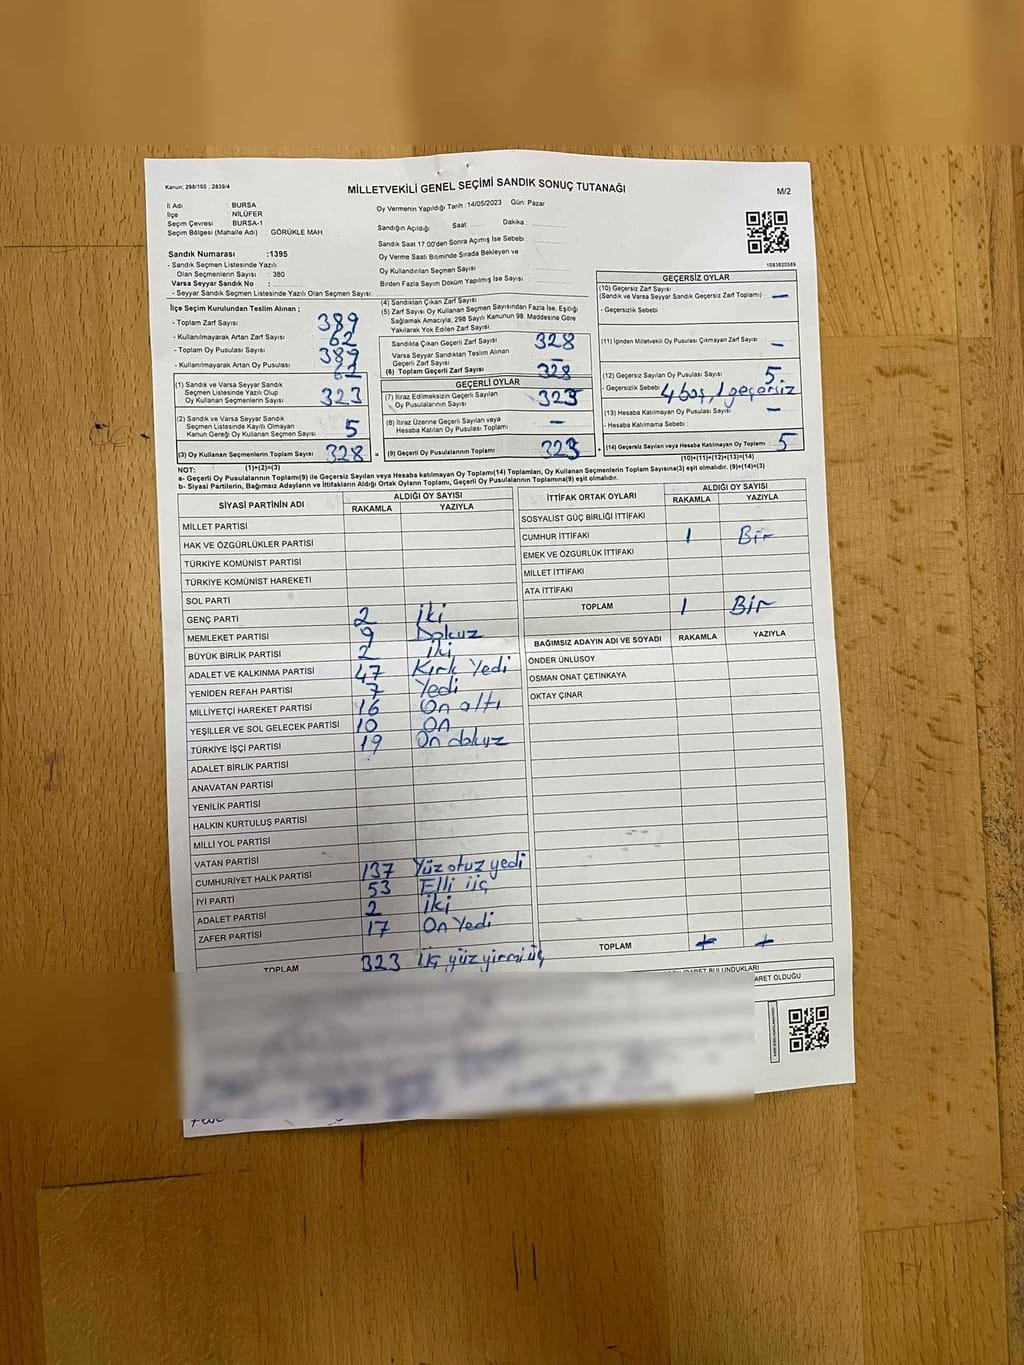 Kanun; 298/105 , 2839/4
MİLLETVEKİLİ GENEL SEÇİMİ SANDIK SONUÇ TUTANAĞI
M/2
İl Adı : BURSA
İlçe : NİLÜFER
Seçim Çevresi : BURSA-1
Seçim Bölgesi (Mahalle Adı) : GÖRÜKLE MAH
Oy Vermenin Yapıldığı Tarih : 14/05/2023 Gün: Pazar
Sandığın Açıldığı Saat Dakika :
Sandık Saat 17.00'den Sonra Açılmış İse Sebebi :
Oy Verme Saati Bitiminde Sırada Bekleyen ve
Oy Kullandırılan Seçmen Sayısı :
Birden Fazla Sayım Döküm Yapılmış İse Sayısı :
1083820589
Sandık Numarası :1395
- Sandık Seçmen Listesinde Yazılı
Olan Seçmenlerin Sayısı : 380
Varsa Seyyar Sandık No :
- Seyyar Sandık Seçmen Listesinde Yazılı Olan Seçmen Sayısı:
İlçe Seçim Kurulundan Teslim Alınan ;
- Toplam Zarf Sayısı 389
- Kullanılmayarak Artan Zarf Sayısı : 62
- Toplam Oy Pusulası Sayısı : 389
- Kullanılmayarak Artan Oy Pusulası : 62
(1) Sandık ve Varsa Seyyar Sandık
Seçmen Listesinde Yazılı Olup
Oy Kullanan Seçmenlerin Sayısı 323
(2) Sandık ve Varsa Seyyar Sandık
Seçmen Listesinde Kayıtlı Olmayan
Kanun Gereği Oy Kullanan Seçmen Sayısı 5
(3) Oy Kullanan Seçmenlerin Toplam Sayısı 328
(1)+(2)=(3)
(4) Sandıktan Çıkan Zarf Sayısı
(5) Zarf Sayısı Oy Kullanan Seçmen Sayısından Fazla İse, Eşitliği
Sağlamak Amacıyla, 298 Sayılı Kanunun 98. Maddesine Göre
Yakılarak Yok Edilen Zarf Sayısı :
Sandıkta Çıkan Geçerli Zarf Sayısı 328
Varsa Seyyar Sandıktan Teslim Alınan
Geçerli Zarf Sayısı —
(6) Toplam Geçerli Zarf Sayısı 328
GEÇERLİ OYLAR
(7) İtiraz Edilmeksizin Geçerli Sayılan
Oy Pusulalarının Sayısı 323
(8) İtiraz Üzerine Geçerli Sayılan veya
Hesaba Katılan Oy Pusulası Toplamı —
= (9) Geçerli Oy Pusulalarının Toplamı 323
GEÇERSİZ OYLAR
(10) Geçersiz Zarf Sayısı
(Sandık ve Varsa Seyyar Sandık Geçersiz Zarf Toplamı) —
- Geçersizlik Sebebi :
(11) İçinden Milletvekili Oy Pusulası Çıkmayan Zarf Sayısı —
(12) Geçersiz Sayılan Oy Pusulası Sayısı 5
- Geçersizlik Sebebi 4 boş, 1 geçersiz
(13) Hesaba Katılmayan Oy Pusulası Sayısı —
- Hesaba Katılmama Sebebi :
+ (14) Geçersiz Sayılan veya Hesaba Katılmayan Oy Toplamı 5
(10)+(11)+(12)+(13)=(14)
NOT:
a- Geçerli Oy Pusulalarının Toplamı(9) ile Geçersiz Sayılan veya Hesaba katılmayan Oy Toplamı(14) Toplamları, Oy Kullanan Seçmenlerin Toplam Sayısına(3) eşit olmalıdır. (9)+(14)=(3)
b- Siyasi Partilerin, Bağımsız Adayların ve İttifakların Aldığı Ortak Oyların Toplamı, Geçerli Oy Pusulalarının Toplamına(9) eşit olmalıdır.
SİYASİ PARTİNİN ADI ALDIĞI OY SAYISI
RAKAMLA YAZIYLA
MİLLET PARTİSİ
HAK VE ÖZGÜRLÜKLER PARTİSİ
TÜRKİYE KOMÜNİST PARTİSİ
TÜRKİYE KOMÜNİST HAREKETİ
SOL PARTİ
GENÇ PARTİ 2 iki
MEMLEKET PARTİSİ 9 Dokuz
BÜYÜK BİRLİK PARTİSİ 2 iki
ADALET VE KALKINMA PARTİSİ 47 Kırk Yedi
YENİDEN REFAH PARTİSİ 7 Yedi
MİLLİYETÇİ HAREKET PARTİSİ 16 On altı
YEŞİLLER VE SOL GELECEK PARTİSİ 10 On
TÜRKİYE İŞÇİ PARTİSİ 19 On dokuz
ADALET BİRLİK PARTİSİ
ANAVATAN PARTİSİ
YENİLİK PARTİSİ
HALKIN KURTULUŞ PARTİSİ
MİLLİ YOL PARTİSİ
VATAN PARTİSİ
CUMHURİYET HALK PARTİSİ 137 Yüz otuz yedi
İYİ PARTİ 53 Elli üç
ADALET PARTİSİ 2 iki
ZAFER PARTİSİ 17 On Yedi
TOPLAM 323 Üç yüz yirmi üç
İTTİFAK ORTAK OYLARI ALDIĞI OY SAYISI
RAKAMLA YAZIYLA
SOSYALİST GÜÇ BİRLİĞİ İTTİFAKI
CUMHUR İTTİFAKI 1 Bir
EMEK VE ÖZGÜRLÜK İTTİFAKI
MİLLET İTTİFAKI
ATA İTTİFAKI
TOPLAM 1 Bir
BAĞIMSIZ ADAYIN ADI VE SOYADI RAKAMLA YAZIYLA
ÖNDER ÜNLÜSOY
OSMAN ONAT ÇETİNKAYA
OKTAY ÇINAR
TOPLAM
BULUNDUKLARI
ARET OLDUĞU